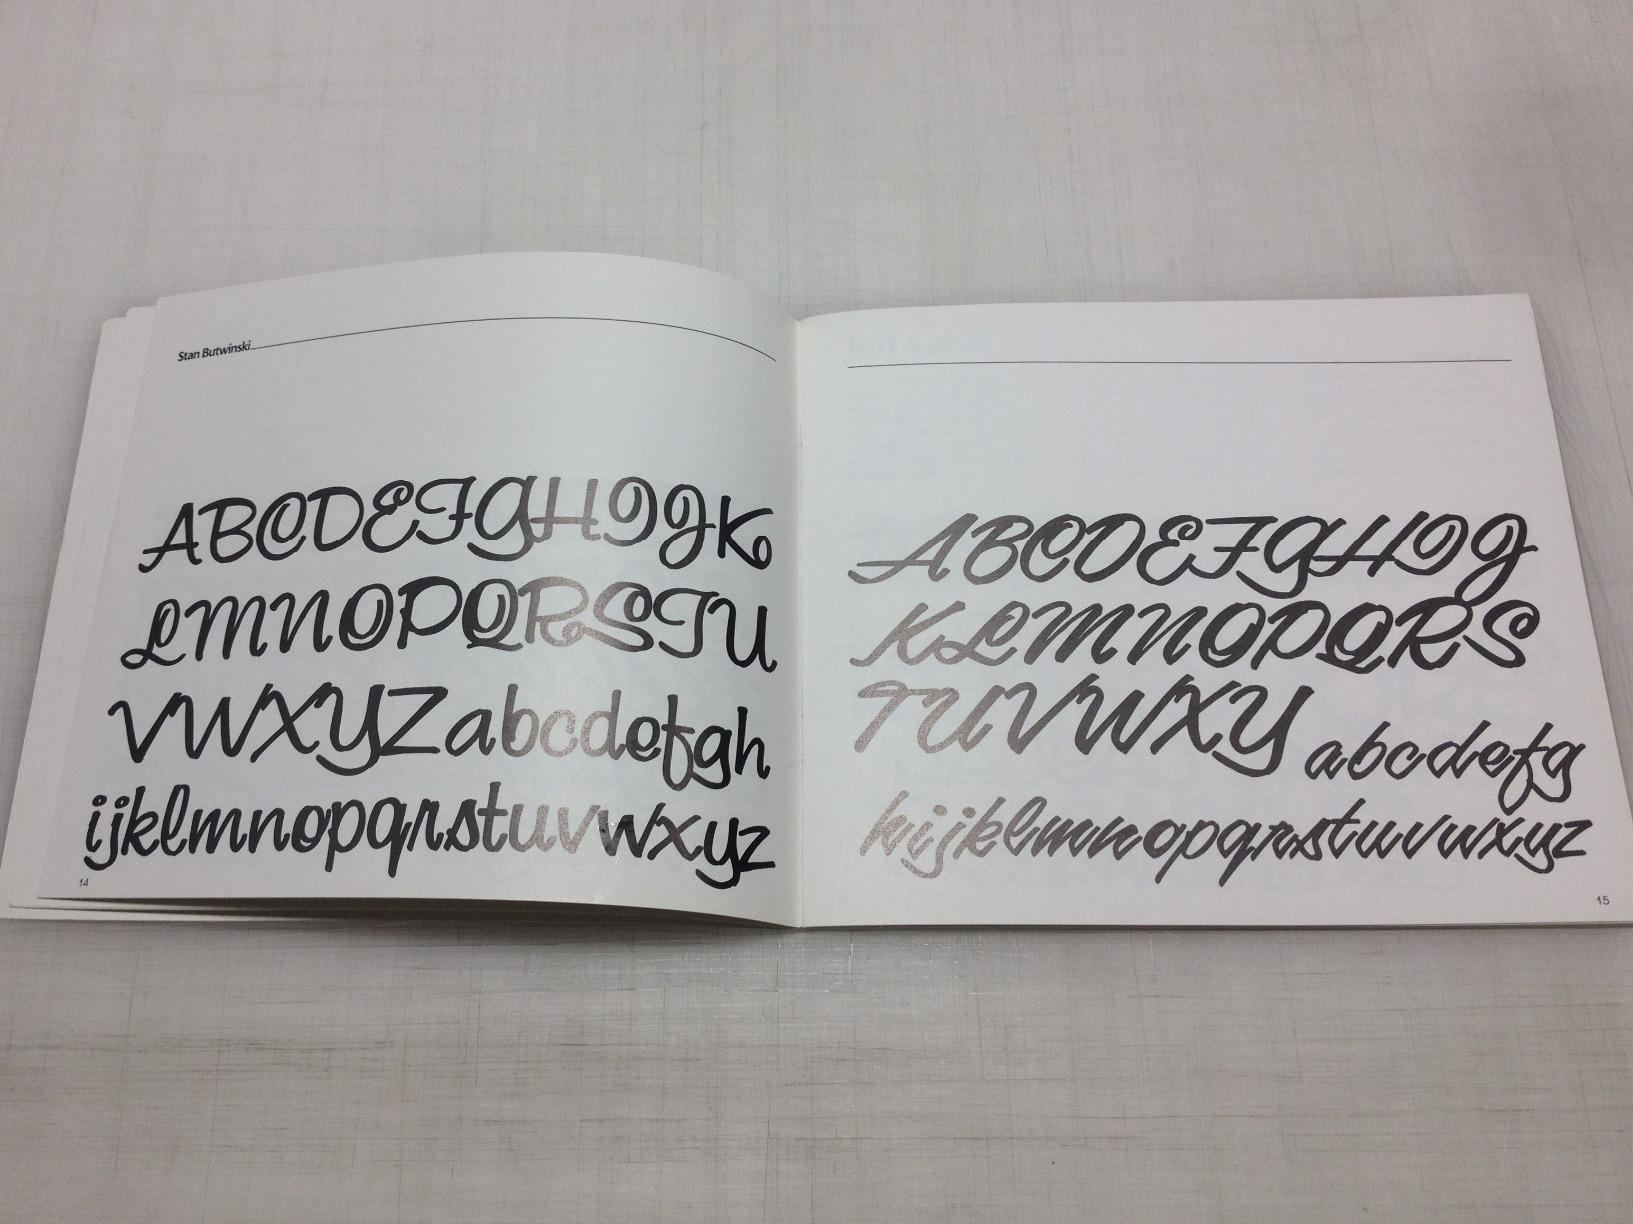 Stan Butwinski
ABCDEFGHIJK
LMNOPQRSTU
VWXYZabcdefgh
ijklmnopqrstuvwxyz
14
ABCDEFGHIJ
KLMNOPQRS
TUVWXY abcdefg
hijklmnopqrstuvwxyz
15